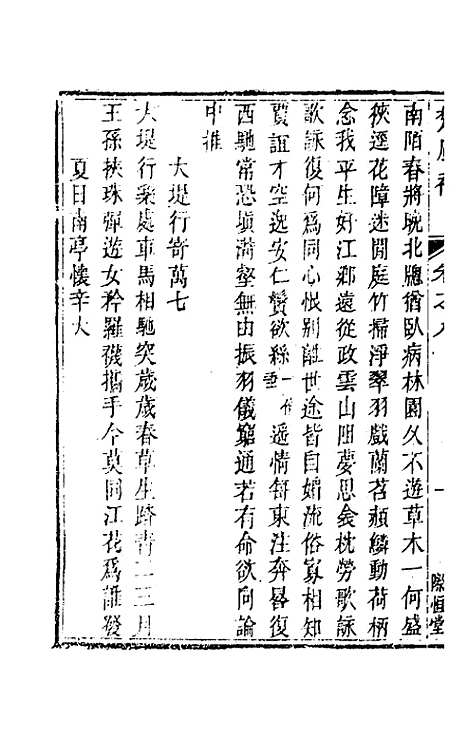 楚風補 卷之八 一 際恒堂
南陌春將晚北牕猶臥病林園久不遊草木一何盛
狹逕花障迷閒庭竹掃淨翠羽戲蘭苕頳鱗動荷柄
念我平生好江鄉遠從政雲山阻夢思衾枕勞歌詠
歌詠復何爲同心恨別離世途皆自媚流俗寡相知
賈誼才空逸安仁鬢欲絲一作垂遥情每東注奔晷復
西馳常恐塡溝壑無由振羽儀窮通若有命欲向論
中推
大堤行寄萬七
大堤行樂處車馬相馳突歲歲春草生踏青二三月
王孫挾珠彈遊女矜羅襪攜手今莫同江花爲誰發
夏日南亭懷辛大